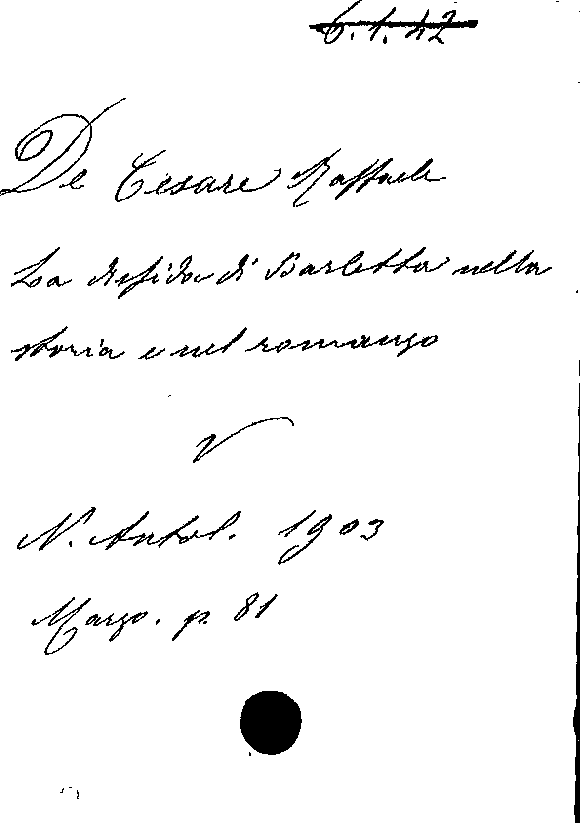 6.1.42
De Cesare Raffaele
La disfida di Barletta nella
storia e nel romanzo
V
N. Antol. 1903
Marzo. p. 81